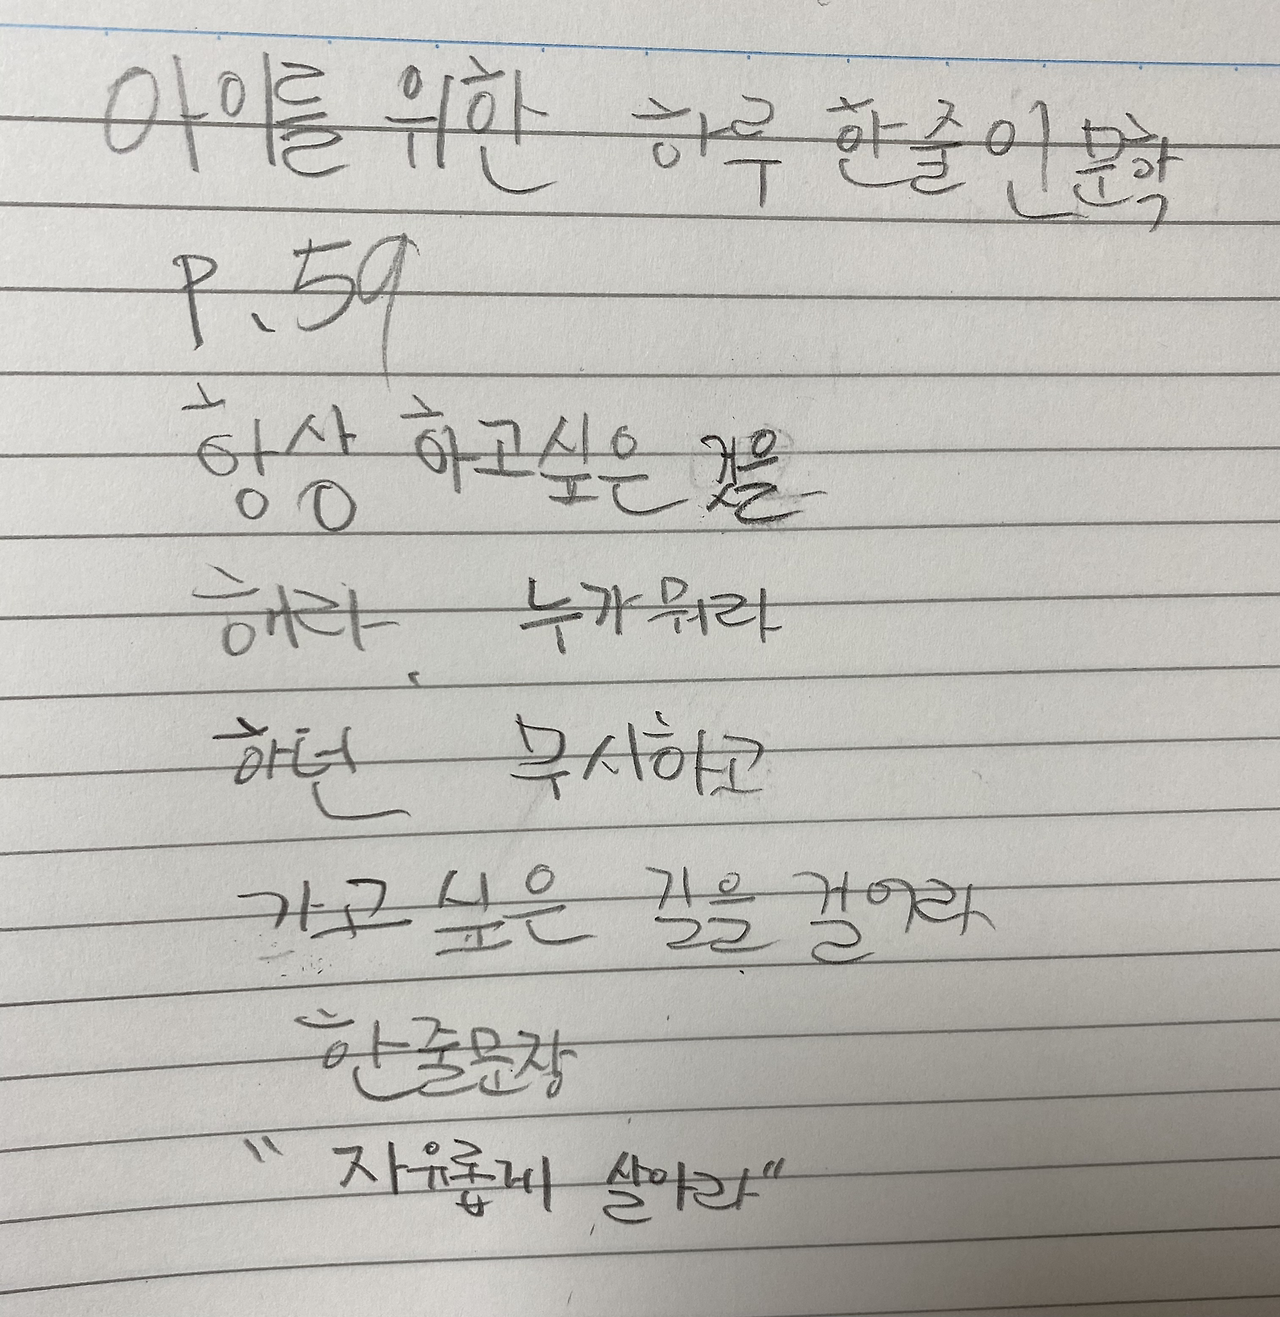 아이를 위한 하루 한줄인문학
P.59
항상 하고싶은 것을
해라. 누가뭐라
하던 무시하고
가고 싶은 길을 걸어라
한줄문장
"자유롭게 살아라"